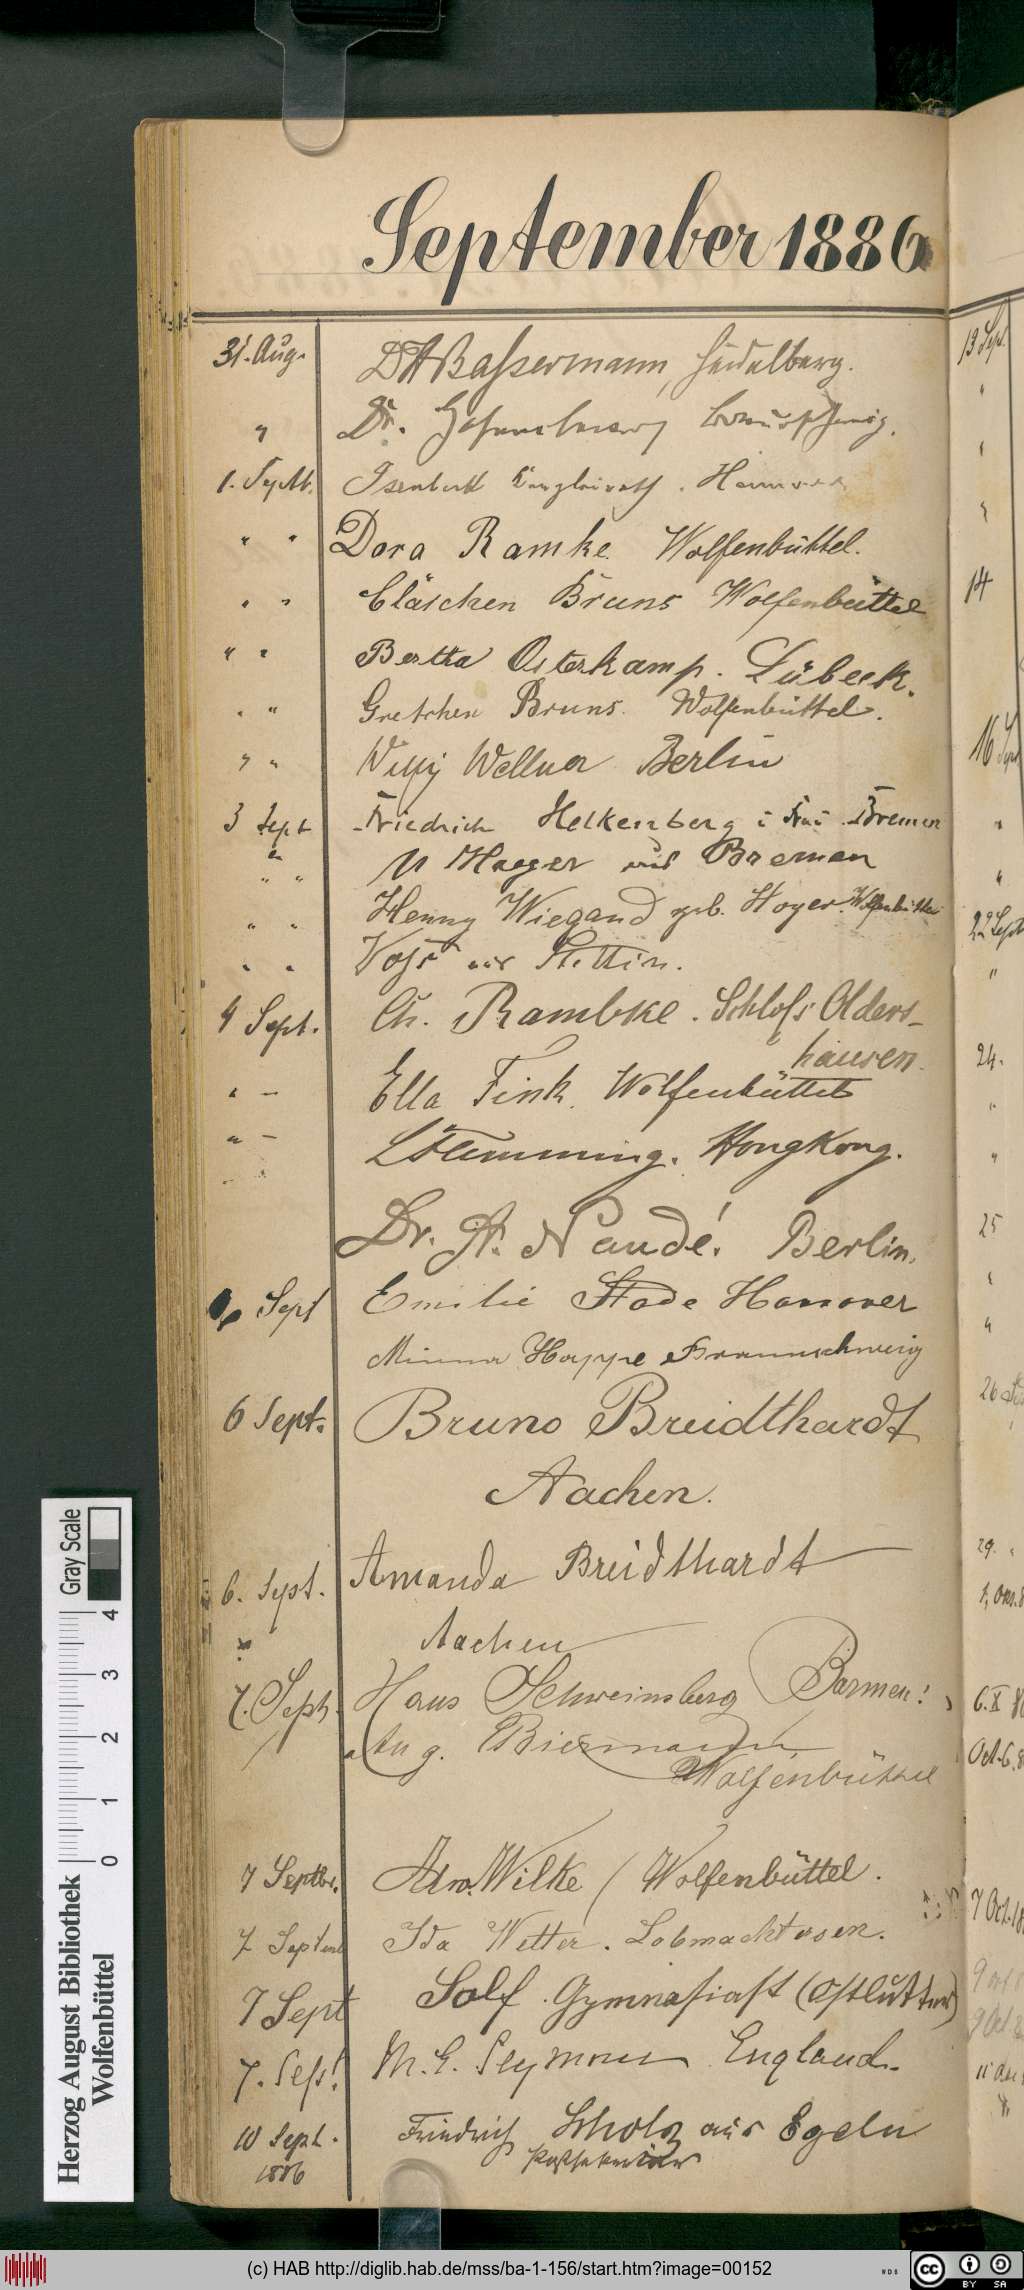 September 1886
31. Aug. Dr A Bassermann, Heidelberg.
" Dr. Braunschweig.
1. Septb. Isenbeck Kanzleirath. Hannover
" " Dora Ramke Wolfenbüttel.
" " Cläschen Bruns Wolfenbüttel
" " Bertha Osterkamp. Lübeck.
" " Gretchen Bruns. Wolfenbüttel.
" " Willy Wellner Berlin
3 Sept Friedrich Helkenberg Bremen
" " Haeger aus Bremen
" " Henny Wiegand geb. Hoyer. Wolfenbüttel
" " Voss aus Stettin.
4 Sept. Ch. Rambke. Schloss Olders-
hausen.
" – Ella Fink. Wolfenbüttel
" – L Flemming. HongKong.
Dr. A. Naudé. Berlin.
6 Sept Emilie Stade Hannover
Minna Hoppe Braunschweig
6 Sept. Bruno Breidthardt
Aachen.
6. Sept. Amanda Breidthardt
" Aachen
7. Sept. Hans Schweinsberg Barmen!
Aug. Biermann
Wolfenbüttel
7 Septbr. Wilke / Wolfenbüttel.
7 Septemb Ida Wetter. Lobmachtersen.
7 Sept Solf. Gymnasiast (Ostlutter)
7. Sept. M. E. Seymour England.
10 Sept. Friedrich Scholz aus Egeln
1886 Postsekretär
13 Sept.
"
"
"
14
16 Sept
"
"
22 Sept
"
24.
"
"
25
"
"
26 Sept
29. "
6. X
Oct. 6. 8
7 Oct. 18
9 Oct 8
Gray Scale
0 1 2 3 4
Herzog August Bibliothek
Wolfenbüttel
(c) HAB http://diglib.hab.de/mss/ba-1-156/start.htm?image=00152
cc BY SA